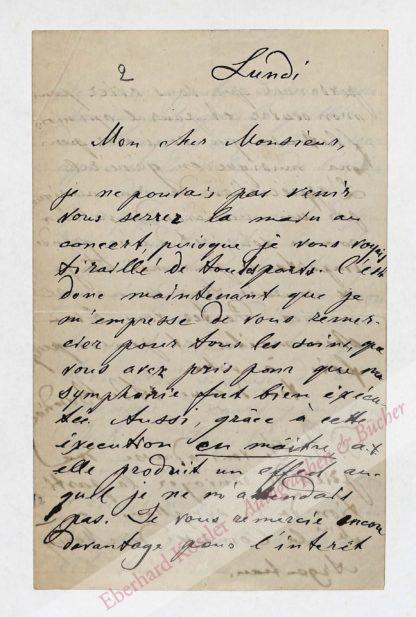 2 Lundi
Mon cher Monsieur,
je ne pouvais pas venir
vous serrer la main au
concert, puisque je vous voyais
tiraillé de toutes parts. C'est
donc maintenant que je
m'empresse de vous remer-
cier pour tous les soins, que
vous avez pris pour que ma
symphonie fut bien éxécu-
tée. Aussi, grâce à cette
éxécution en maitre, a-t-
elle produit un effet au-
quel je ne m'attendais
pas. Je vous remercie encore
davantage pour l'intérêt
Eberhard Köstler Autographen & Bücher